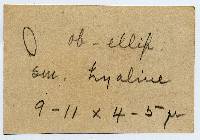 ob-ellip.
sm. hyaline
9-11 x 4-5 µ